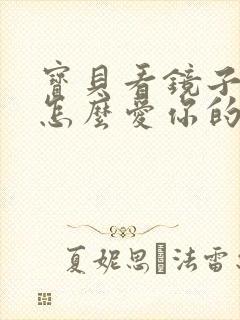 寶貝看鏡子
怎麼愛你的
夏妮思 法雷